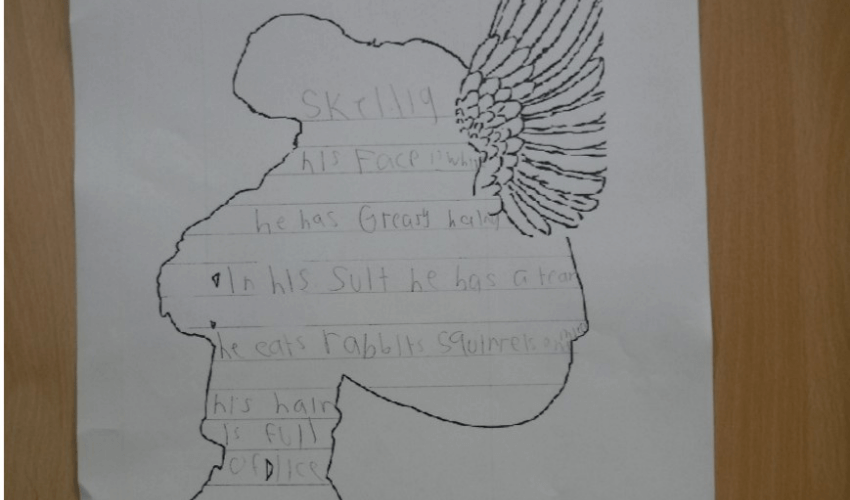 Skellig
his Face is whi
he has Greasy hair
In his Suit he has a tear
he eats rabbits squirrels and
his hair
is full
of lice